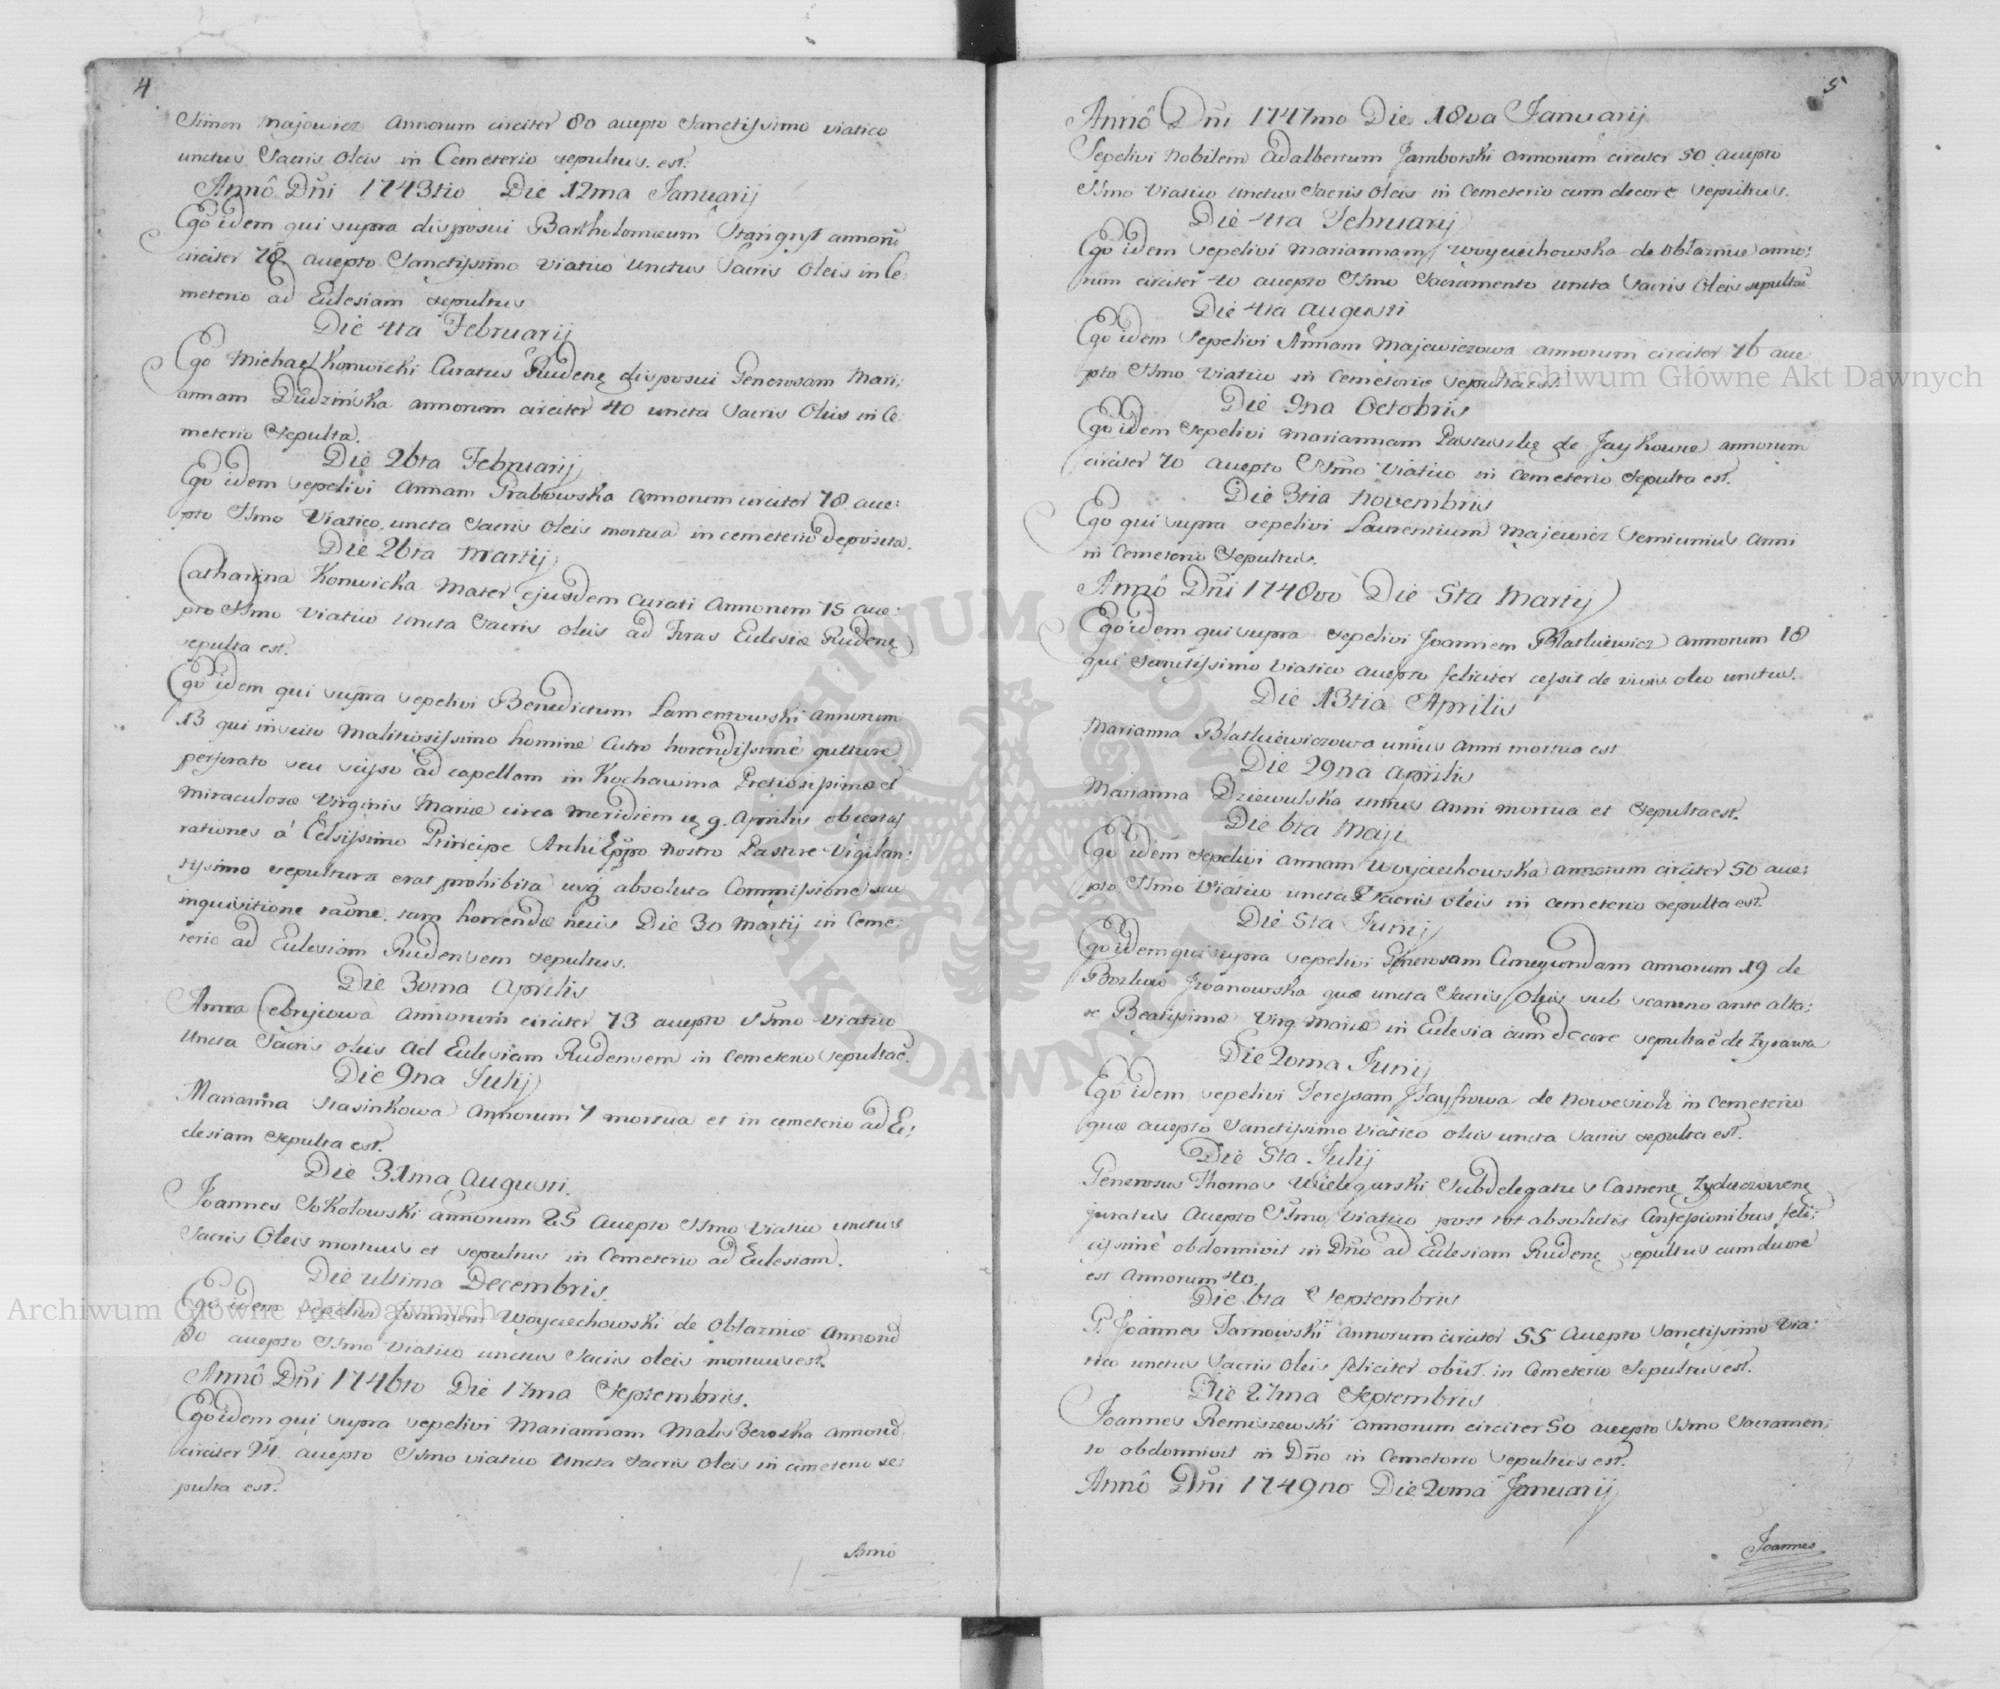 4
Simon Majewicz Annorum circiter 80 accepto Sanctissimo viatico
unctus Sacris Oleis in Cemeterio sepultus est.
Annô Dñi 1743tio Die 12ma Januarij
Ego idem qui supra disposui Bartholomæum annorũ
circiter 78 accepto Sanctissimo Viatico Unctus Sacris Oleis in Ce:
meterio ad Eclesiam sepultus
Die 4ta Februarij
Ego Michael Konwicki Curatus Rudenę disposui Generosam Mari:
annam Dudzińska annorum circiter 40 uncta Sacris Oleis in Ce:
meterio Sepulta.
Die 26ta Februarij
Ego idem sepelivi Annam Grabowska Annorum circiter 78 acce:
pto SSmo Viatico, uncta Sacris Oleis mortua in cemeterio deposita.
Die 26ta Martij
Catharina Konwicka Mater ejusdem Curati Annorum 75 acce:
pto SSmo Viatico Uncta Sacris Oleis ad Fores Eclesiæ Rudenę
sepulta est.
Ego idem qui supra sepelivi Benedictum Lamentowski Annorum
13 qui malitiosissimo homine Cutro horendissimè gutture
perforato seu sciso ad capellam in Kochawina Pretiosissimæ et
miraculosæ Virginis Mariæ circa meridiem 9. Aprilis ob certas
rationes à Celsissimo Principe ArchiEppo Nostro Pastore Vigilan:
tissimo sepultura erat prohibita usq absoluta Commissione seu
inquisitione raõne tam horrendæ necis Die 30 Martij in Ceme:
terio ad Eclesiam Rudensem sepultus.
Die 30ma Aprilis
Anna Cebryiowa Annorum circiter 73 accepto SSmo Viatico
Uncta Sacris Oleis Ad Eclesiam Rudensem in Cemeterio Sepulta ẽ.
Die 9na Julij
Marianna Stasinkowa Annorum 7 mortua et in cemeterio ad Ec:
clesiam Sepulta est.
Die 31ma Augusti.
Joannes Sokołowski annorum 25 Accepto SSmo Viatico unctus
Sacris Oleis mortuus et sepultus in Cemeterio ad Eclesiam.
Die ultima Decembris.
Ego idem sepelivi Joannem Woyciechowski de Obłaznicæ Annorũ
80 accepto SSmo Viatico unctus Sacris oleis mortuus est.
Annô Dñi 1746to Die 17ma Septembris.
Ego idem qui supra sepelivi Mariannam Annorũ
circiter 24 accepto SSmo viatico Uncta Sacris Oleis in cimeterio se:
pulta est.
Anno
5
Annô Dñi 1747mo Die 18va Januarij
Sepelivi Nobilem Adalbertum Jamborski Annorum circiter 50 Accepto
SSmo Viatico Unctus Sacris Oleis in Cemeterio cum decore Sepultus.
Die 4ta Februarij
Ego idem Sepelivi Mariannam Woyciechowska de Obłaznicæ anno:
rum circiter 40 accepto SSmo Sacramento uncta Sacris Oleis sepulta ẽ
Die 4ta Augusti
Ego idem Sepelivi Annam Majewiczowa annorum circiter 76 acce
pto SSmo Viatico in Cemeterio Sepulta est.
Die 9na Octobris
Ego idem Sepelivi Mariannam Pastuszkę de Jaykowce annorum
circiter 70 accepto SSmo Viatico in Cemeterio Sepulta est.
Die 3tia Novembris
Ego qui supra sepelivi Laurentium Majewicz Semiunius Anni
in Cemeterio Sepultus.
Annô Dñi 1748vo Die 5ta Martij
Ego idem qui supra sepelivi Joannem Blatkiewicz annorum 18
qui Sanctissimo Viatico accepto feliciter cessit de vivis oleo unctus.
Die 13tia Aprilis
Marianna Blatkiewiczowa unius Anni mortua est
Die 29na Aprilis
Marianna Dziewulska unius Anni mortua et Sepulta est.
Die 6ta Maji
Ego idem Sepelivi Annam Woyciechowska annorum circiter 50 acce:
pto SSmo Viatico uncta Sacris oleis in Cemeterio sepulta est.
Die 5ta Junij
Ego idem qui supra sepelivi Generosam Cunegundam annorum 19 de
Iwanowska quæ uncta Sacris Oleis sub scamno ante alta:
re Beatissimæ Virg. Mariæ in Eclesia cum decore sepulta ẽ de Zyrawa
Die 20ma Junij
Ego idem sepelivi Teressam de Nowesiołi in Cemeterio
quæ accepto Sanctissimo Viatico oleis uncta Sacris sepulta est.
Die 5ta Julij
Generosus Thomas Wielogurski Subdelegatus Castrenę Zydaczowienę
juratus Accepto SSmo Viatico post tot absolutis Confessionibus feli:
cissimè obdormivit in Dño ad Eclesiam Rudenę sepultus cum decore
est Annorum 40.
Die 6ta Septembris
G. Joannes Tarnowski annorum circiter 55 Accepto Sanctissimo Via:
tico unctus Sacris Oleis feliciter obiit in Cemeterio Sepultus est.
Die 27ma Septembris
Joannes Remiszewski Annorum circiter 50 accepto SSmo Sacramen:
to obdormivit in Dño in Cemeterio Sepultus est.
Annô Dñi 1749no Die 20ma Januarij
Joannes
Archiwum Główne Akt Dawnych
Archiwum Główne Akt Dawnych
ARCHIWUM GŁÓWNE
AKT DAWNYCH